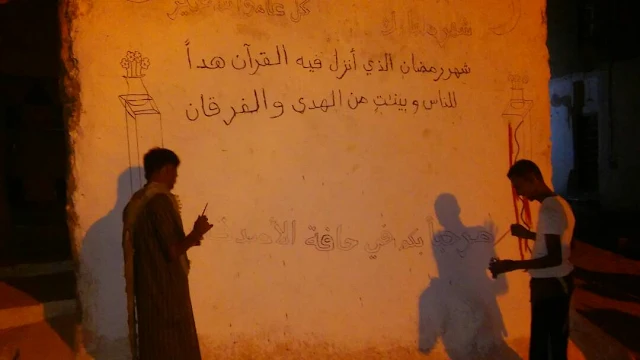 كل عام وأنتم بخير
شهر رمضان الذي أنزل فيه القرآن هداً
للناس وبينت من الهدى والفرقان
مرحباً بكم في حافة الأصدقاء